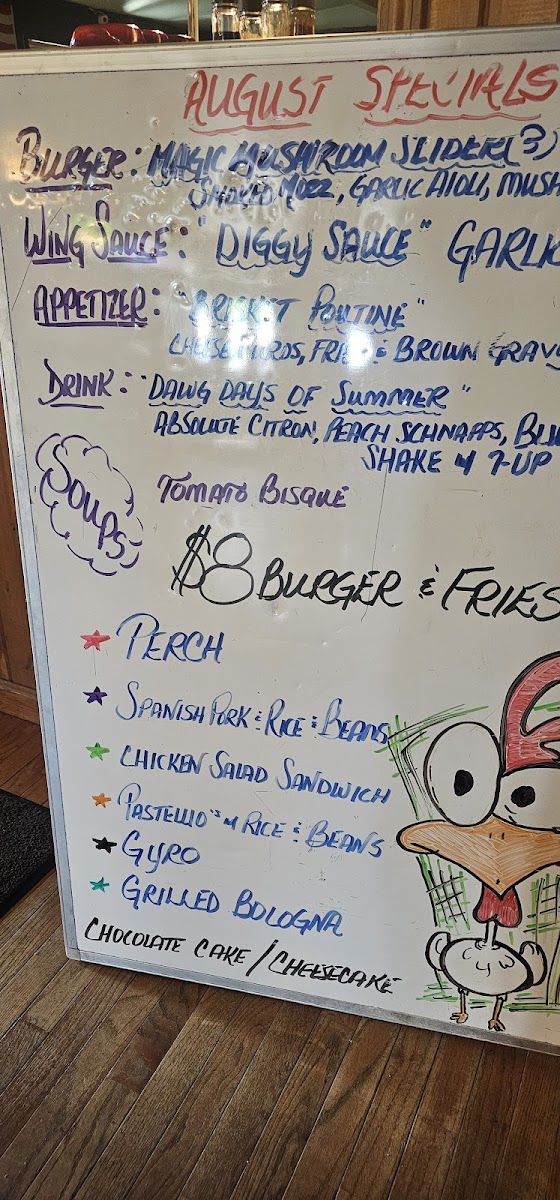 AUGUST SPECIALS
BURGER: MAGIC MUSHROOM SLIDER(3)
SMOKED MOZZ, GARLIC AIOLI, MUSH
WING SAUCE: "DIGGY SAUCE" GARLIC
APPETIZER: "BRISKET POUTINE"
CHEESE CURDS, FRIES & BROWN GRAVY
DRINK: "DAWG DAYS OF SUMMER"
ABSOLUTE CITRON, PEACH SCHNAPPS, BLU
SHAKE W 7-UP
SOUPS
TOMATO BISQUE
$8 BURGER & FRIES
PERCH
SPANISH PORK & RICE & BEANS
CHICKEN SALAD SANDWICH
PASTELLIO'S W RICE & BEANS
GYRO
GRILLED BOLOGNA
CHOCOLATE CAKE / CHEESECAKE